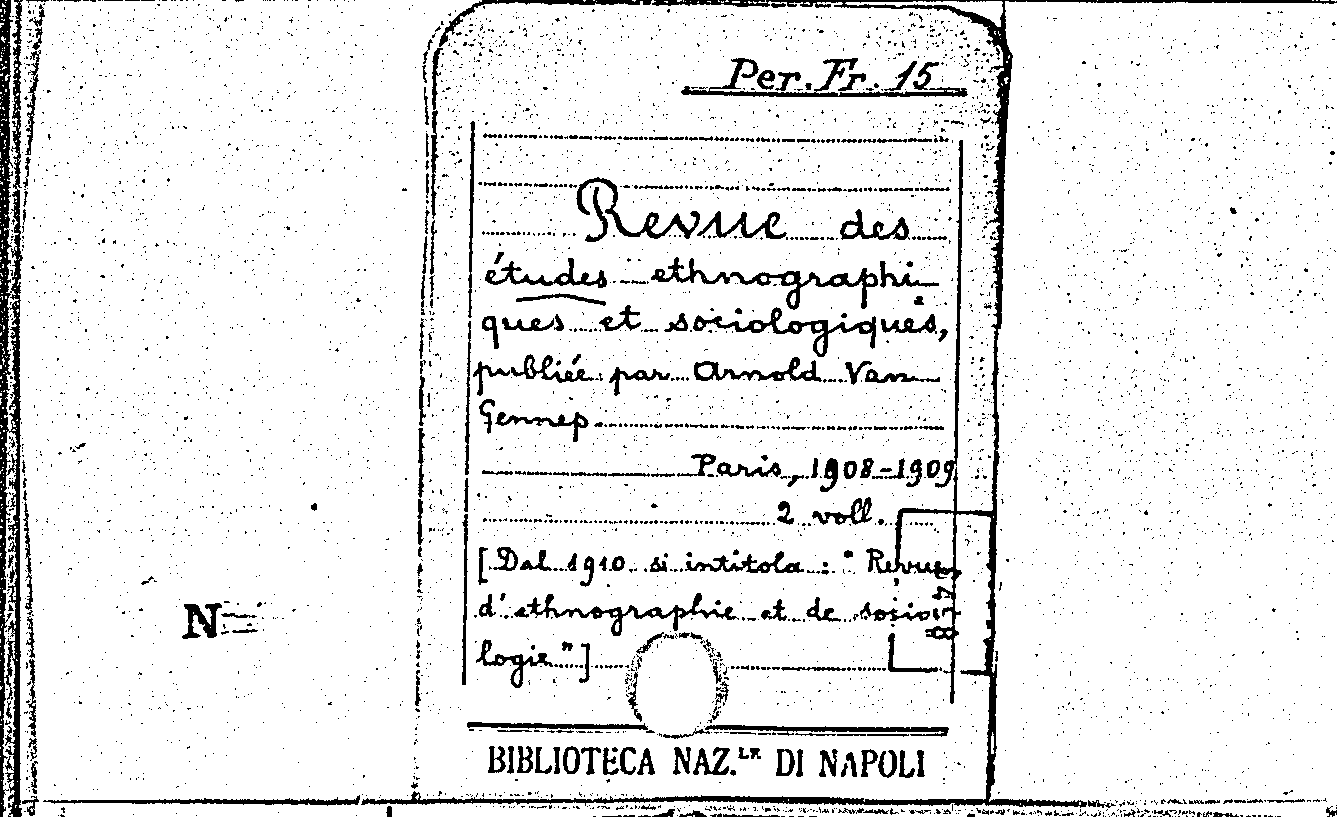 Per. Fr. 15
Revue des
études ethnographi-
ques et sociologiques,
publiée par Arnold Van
Gennep
Paris, 1908-1909
2 voll.
[Dal 1910 si intitola: "Revue
d'ethnographie et de socio-
logie"]
N
BIBLIOTECA NAZ.LE DI NAPOLI